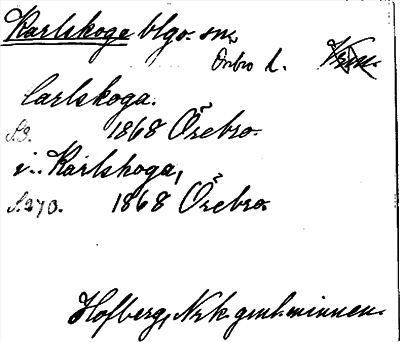 Karlskoge blgo. sn,
Örebro l. Vrm.
Carlskoga.
S.3. 1868 Örebro.
i.. Karlskoga,
S.270. 1868 Örebro.
Hofberg, Nrk gml. minnen.